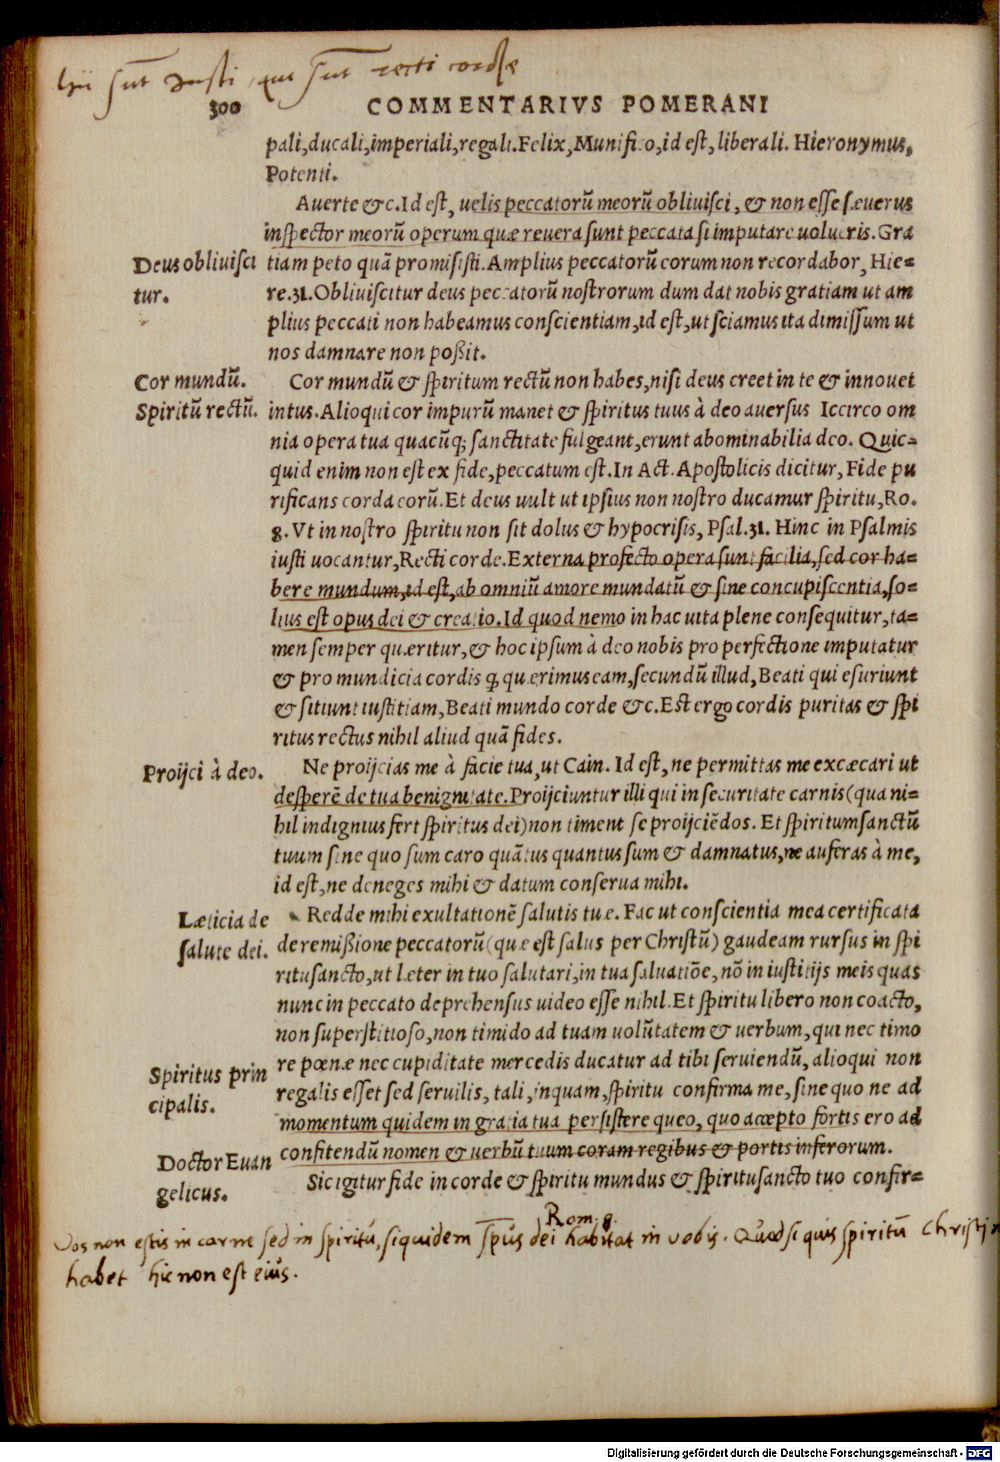 hii sūt iusti, qui sūt recti corde
300 COMMENTARIVS POMERANI
pali, ducali, imperiali, regali. Felix, Munifico, id est, liberali. Hieronymus,
Potenti.
Auerte &c. Id est, uelis peccatorū meorū obliuisci, & non esse seuerus
inspector meorū operum quæ reuera sunt peccata si imputare uolueris. Gra
Deus obliuisci tiam peto quā promisisti. Amplius peccatorū eorum non recordabor, Hie=
tur. re.31. Obliuiscitur deus peccatorū nostrorum dum dat nobis gratiam ut am
plius peccati non habeamus conscientiam, id est, ut sciamus ita dimissum ut
nos damnare non poßit.
Cor mundū. Cor mundū & spiritum rectū non habes, nisi deus creet in te & innouet
Spiritū rectū. intus. Alioqui cor impurū manet & spiritus tuus à deo auersus Iccirco om
nia opera tua quacūq; sanctitate fulgeant, erunt abominabilia deo. Quic=
quid enim non est ex fide, peccatum est. In Act. Apostolicis dicitur, Fide pu
rificans corda eorū. Et deus uult ut ipsius non nostro ducamur spiritu, Ro.
8. Vt in nostro spiritu non sit dolus & hypocrisis, Psal.31. Hinc in Psalmis
iusti uocantur, Recti corde. Externa profecto opera sunt facilia, sed cor ha=
bere mundum, id est, ab omniū amore mundatū & sine concupiscentia, so=
lius est opus dei & creatio. Id quod nemo in hac uita plene consequitur, ta=
men semper quæritur, & hoc ipsum à deo nobis pro perfectione imputatur
& pro mundicia cordis q̃ quærimus eam, secundū illud, Beati qui esuriunt
& sitiunt iustitiam, Beati mundo corde &c. Est ergo cordis puritas & spi
ritus rectus nihil aliud quā fides.
Proijci à deo. Ne proijcias me à facie tua, ut Cain. Id est, ne permittas me excæcari ut
desperē de tua benignitate. Proijciuntur illi qui in securitate carnis (qua ni=
hil indignius fert spiritus dei) non timent se proijciēdos. Et spiritumsanctū
tuum sine quo sum caro quātus quantus sum & damnatus, ne auferas à me,
id est, ne deneges mihi & datum conserua mihi.
Læticia de Redde mihi exultationē salutis tuæ. Fac ut conscientia mea certificata
salute dei. de remißione peccatorū (quæ est salus per Christū) gaudeam rursus in spi
ritusancto, ut læter in tuo salutari, in tua saluatiōe, nō in iustitijs meis quas
nunc in peccato deprehensus uideo esse nihil. Et spiritu libero non coacto,
non superstitioso, non timido ad tuam uolūtatem & uerbum, qui nec timo
Spiritus prin re pœnæ nec cupiditate mercedis ducatur ad tibi seruiendū, alioqui non
cipalis. regalis esset sed seruilis, tali, inquam, spiritu confirma me, sine quo ne ad
momentum quidem in gratia tua persistere queo, quo accepto fortis ero ad
Doctor Euan confitendū nomen & uerbū tuum coram regibus & portis inferorum.
gelicus. Sic igitur fide in corde & spiritu mundus & spiritusancto tuo confir=
Rom. 8.
Vos non estis in carne sed in spiritū, siquidem sp̄us dei habitat in vobis. Quod si quis spiritū Christi n
habet hic non est eius.
Digitalisierung gefördert durch die Deutsche Forschungsgemeinschaft - DFG